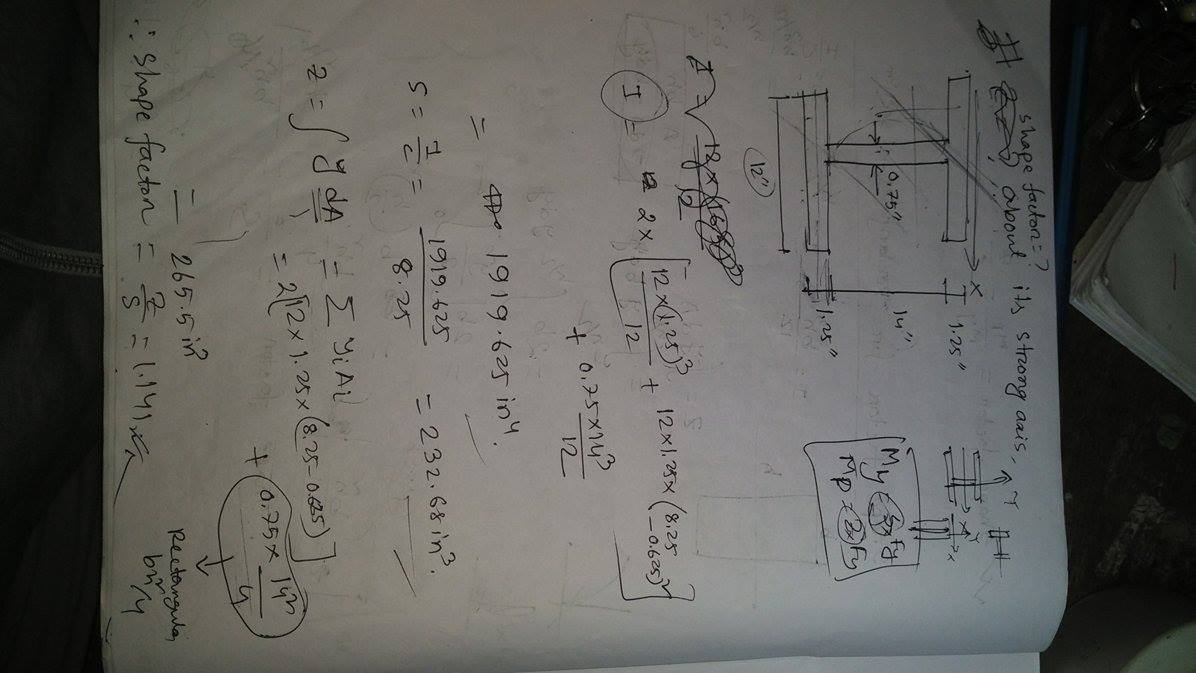 # shape factor=?
about its strong axis,
x
1.25"
14"
1.25"
0.75"
12"
Y
x
My = SxFy
Mp = ZxFy
I = 2 × [12×(1.25)³/12 + 12×1.25×(8.25-0.625)²]
+ 0.75×14³/12
= 1919.625 in⁴.
S = I/c = 1919.625/8.25 = 232.68 in³.
Z = ∫ y dA = Σ yiAi
= 2[12×1.25×(8.25-0.625)] + 0.75×14²/4
Rectangular
bh²/4
= 265.5 in³
∴ shape factor = Z/S = 1.141